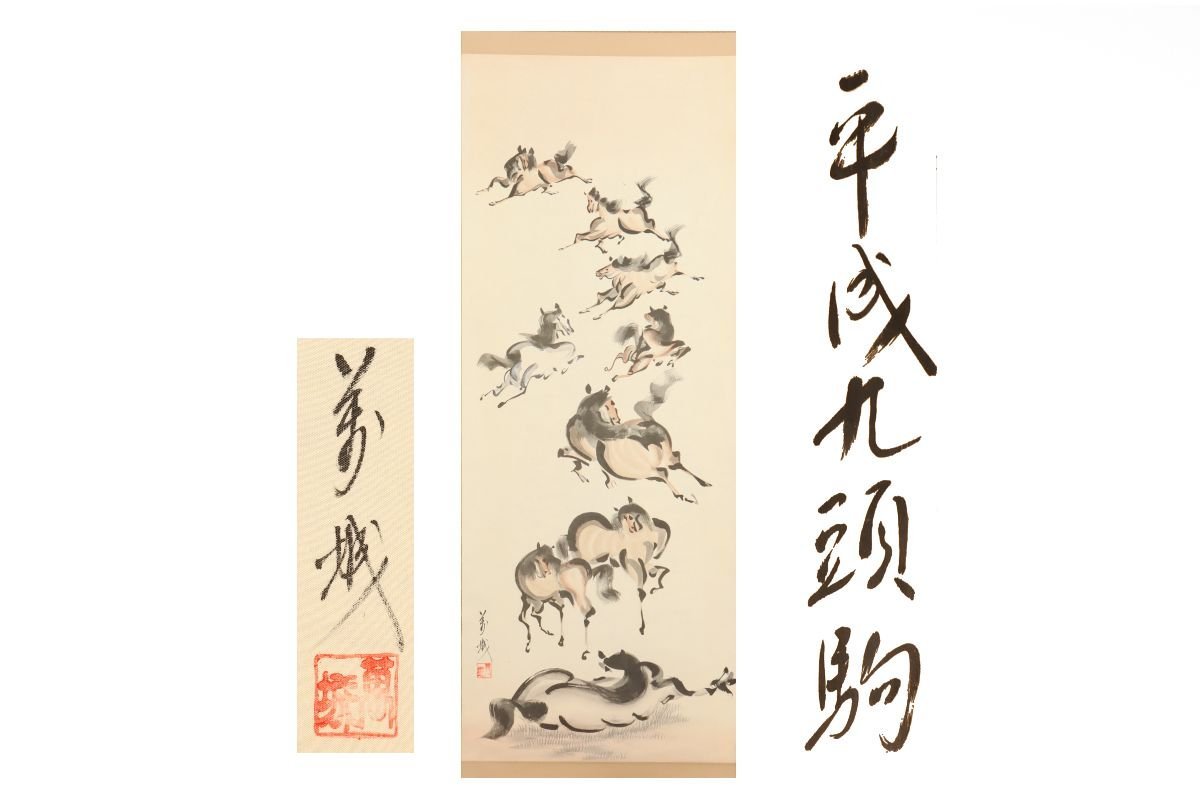 平成九頭駒
萬城
萬城